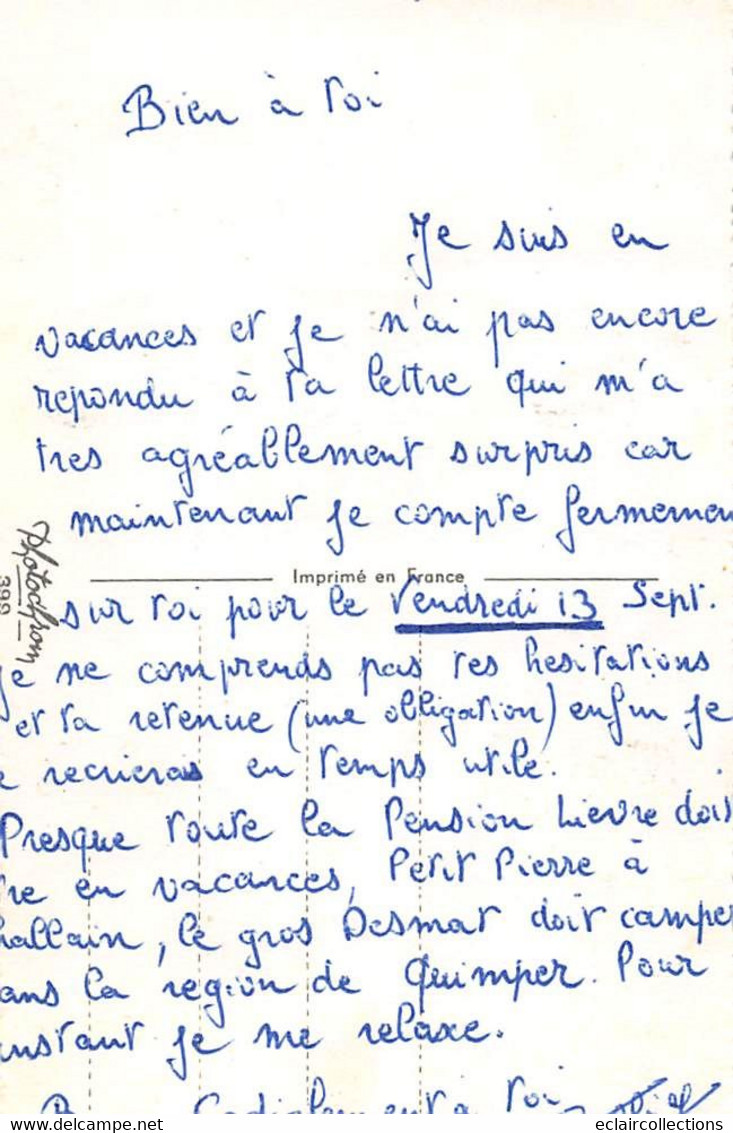 Bien à toi
Je suis en
vacances et je n'ai pas encore
repondu à ta lettre qui m'a
tres agréablement surpris car
maintenant je compte fermemen
Imprimé en France
sur toi pour le Vendredi 13 Sept.
je ne comprends pas tes hesitations
et ta retenue (une obligation) enfin je
e recrieras en temps utile.
Presque toute la Pension Lievre dois
tre en vacances, Petit Pierre à
hallain, le gros Desmat doit camper
ans la région de Quimper. Pour
instant je me relaxe.
Cordialement à toi
Photochrom
399
www.delcampe.net
eclaircollections